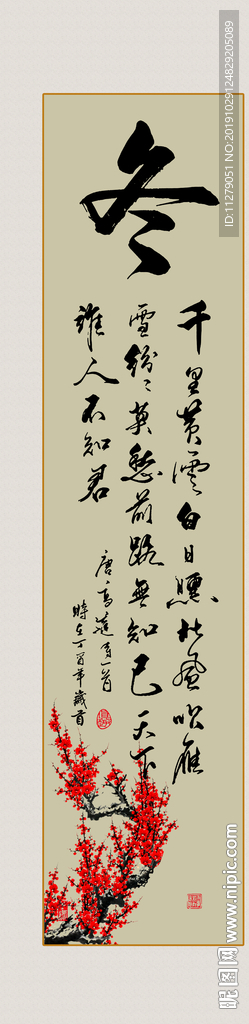 冬
千里黄云白日曛北风吹雁
雪纷纷莫愁前路无知己天下
谁人不知君
唐高适诗一首
时在丁酉年岁首
ID:11279051 NO:20191029124829205089
昵图网 www.nipic.com